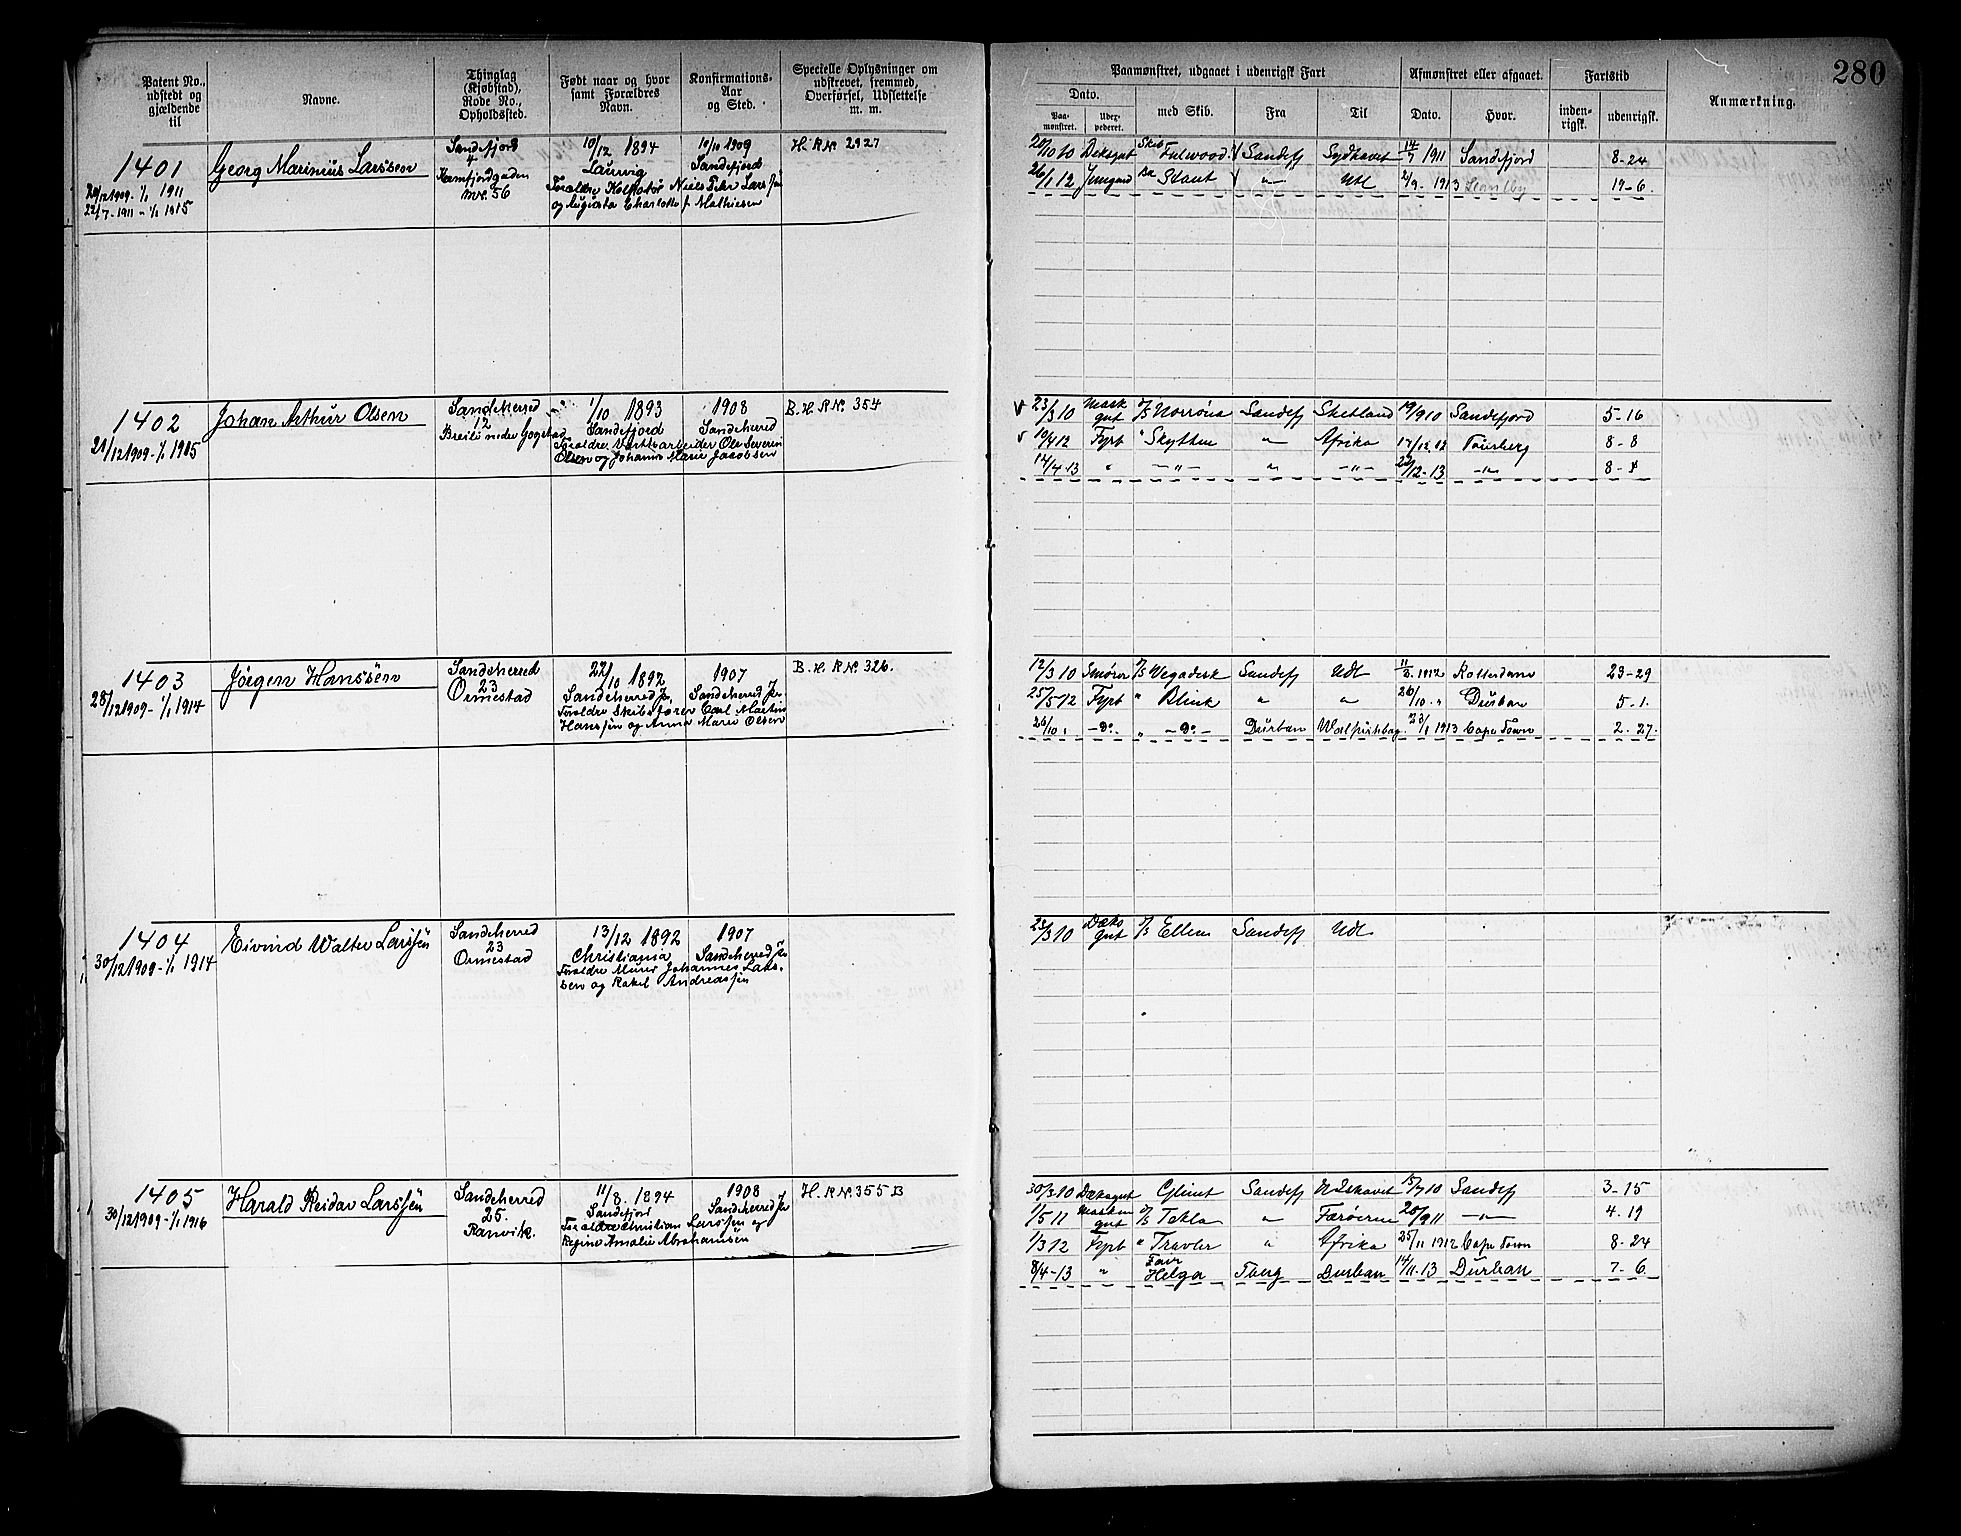 280
Patent No., udstedt og gjældende til
Navne.
Thinglag (Kjøbstad), Rode No., Opholdssted.
Født naar og hvor samt Forældres Navn.
Konfirmations-Aar og Sted.
Specielle Oplysninger om udskrevet, fremmed, Overførsel, Udslettelse m. m.
Paamønstret, udgaaet i udenrigsk Fart
Afmønstret eller afgaaet.
Fartstid
Anmærkning.
Dato.
Paamønstret.
med Skib.
Fra
Til
Dato.
Hvor.
indenrigsk.
udenrigsk.
1401
22/7-1911-1/1 1915
Georg Marinius Larssen
Sandefjord
4
56
10/12 1894
Laurvig
og Augusta Charlotte f. Mathiesen
10/10 1909
Sandefjord
H. R No. 2927
20/10 10 Deksgut Skib Fulwood Sandefj Sydhavet 14/7 1911 Sandefjord 8-24
26/1 12 Jungm Staut " Udl 2/9-1913 19-6.
1402
21/12 1909-1/1 1915
Johan Arthur Olsen
Sandeherred
12
nedre Gogstad
1/10 1893
Sandefjord
Olsen og Johanne Marie Jacobsen
1908
Sandeherred
B. H. R No. 354
23/3 10 Norrøna Sandefj Shetland 19/9 10 Sandefjord 5-16
19/4 12 Fyrb " Skytten " Afrika 17/12.12 Tønsberg 8-8
14/4-13 " -"- " -"- 22/12-13 -"-
1403
28/12 1909-1/1 1914
Jörgen Hanssen
Sandeherred
23
Ormestad
22/10 1892
Sandeherred
Forældre Skibsfører Carl Martin
Hanssen og Anna Marie Olsen
1907
Sandeherred
B. H. R No. 326.
12/3 10 Smører Vegadesk Sandefj Udl 11/2. 1912 Rotterdam 23-29
25/5-12 Fyrb " Blink " " 26/10 " Durban 5-1.
26/10 " -do- " -do- Durban 23/1 1913 Cape Town 2-27.
1404
30/12 1909-1/1 1914
Eivind Walter Larssen
Sandeherred
23
Ormestad
13/12 1892
Christiania
Forældre Murer Johannes Lars-
sen og Rakel Andreassen
1907
Sandeherred
23/3 10 Dæksgut Ellen Sandefj Udl
1405
30/12 1909-1/1 1916
Harald Reidar Larssen
Sandeherred
25.
Ranvik.
11/8. 1894
Sandefjord
Forældre Christian Larssen og
Regine Amalie Abrahamsen
1908
Sandeherred
H. R No. 355 B
30/3 10 Dæksgut Glimt Sandefj N Ishavet 15/7 10 Sandefj 3-15
1/5 11 Tekla " Færøerne 20/9 11 -"- 4.19
1/3 12 Fyrb " Travler " Afrika 25/11 1912 Cape Town 8-24
8/4-13 " Fair Helga Tberg Durban 14/11.13 Durban 7-6